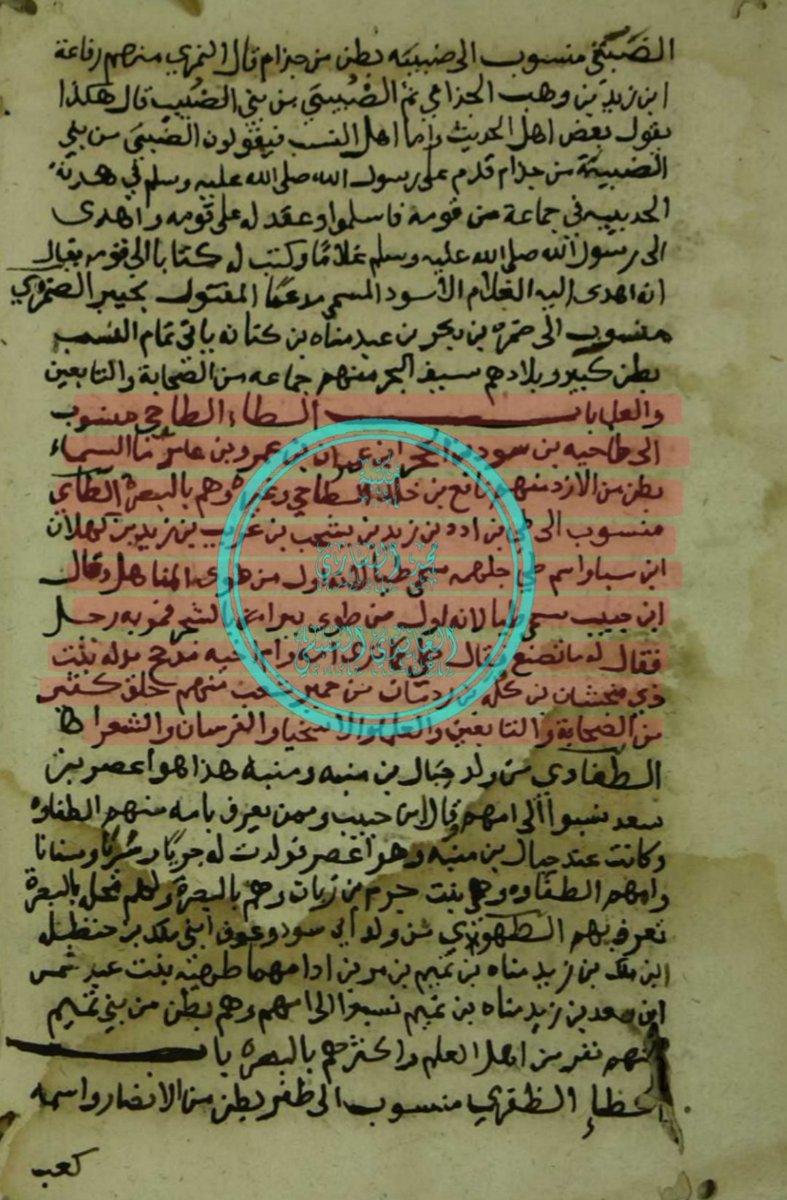 الضَبَيْي منسوب الى ضبيبه بطن من جذام قال النمري منهم رفاعة
ابن زيد بن وهب الجذامي ثم الضُبيبي من بني الضُبيب قال هكذا
يقول بعض اهل الحديث واما اهل النسب فيقولون الضبيبي من بني
الضبيبة من جذام قدم على رسول الله صلى الله عليه وسلم في هدنة
الحديبيه في جماعة من قومه فاسلموا وعقد له على قومه واهدى
الى رسول الله صلى الله عليه وسلم غلامًا وكتب له كتابا الى قومه يقال
انه اهدى اليه الغلام الاسود المسمى مدعمًا المقتول بخيبر الضمري
منسوب الى ضمره بن بكر بن عبد مناه بن كنانه ياتي تمام النسب
بطن كبير وبلادهم سيف البحر منهم جماعه من الصحابة والتابعين
والعلما باب الطاء الطاحي منسوب
الى طاحيه بن سود بن الحجر بن عمران بن عمرو بن عامر ما السماء
بطن من الازد منهم نافع بن خالد الطاحي وغيره وهم بالبصرة الطاي
منسوب الى طي بن ادد بن زيد بن يشجب بن عريب بن زيد بن كهلان
ابن سبا واسم طي جلهمه سمي طيا لانه اول من طوى المناهل وقال
ابن حبيب سمي طيا لانه اول من طوى بيرا فمر به رجل
فقال له ما تصنع فقال طي مدله بنت
ذي منجشان بن كله بن ردمان من حمير منهم خلق كثير
من الصحابة والتابعين والعلما والاسخيا والفرسان والشعرا
الطفاوي من ولد جبال بن منبه ومنبه هذا هو اعصر بن
سعد نسبوا الى امهم قال ابن حبيب وممن يعرف بامه منهم الطفاوه
وكانت عند جبال بن منبه وهو اعصر فولدت له جريًا وسُريًا وسنانا
وامهم الطفاوه وهي بنت جرم بن زبان وهم بالبصرة ولهم محلة بالبصرة
تعرف بهم الطهوي من ولد ابي سود وعوف ابني ملك بن حنظله
ابن ملك بن زيد مناه بن تميم بن مر بن اد امهما طهيه بنت عبد شمس
ابن سعد بن زيد مناه بن تميم نسبوا الى امهم وهم بطن من بني تميم
منهم نفر من اهل العلم واكثرهم بالبصره باب
الظاء الظفري منسوب الى ظفر بطن من الانصار واسمه
كعب